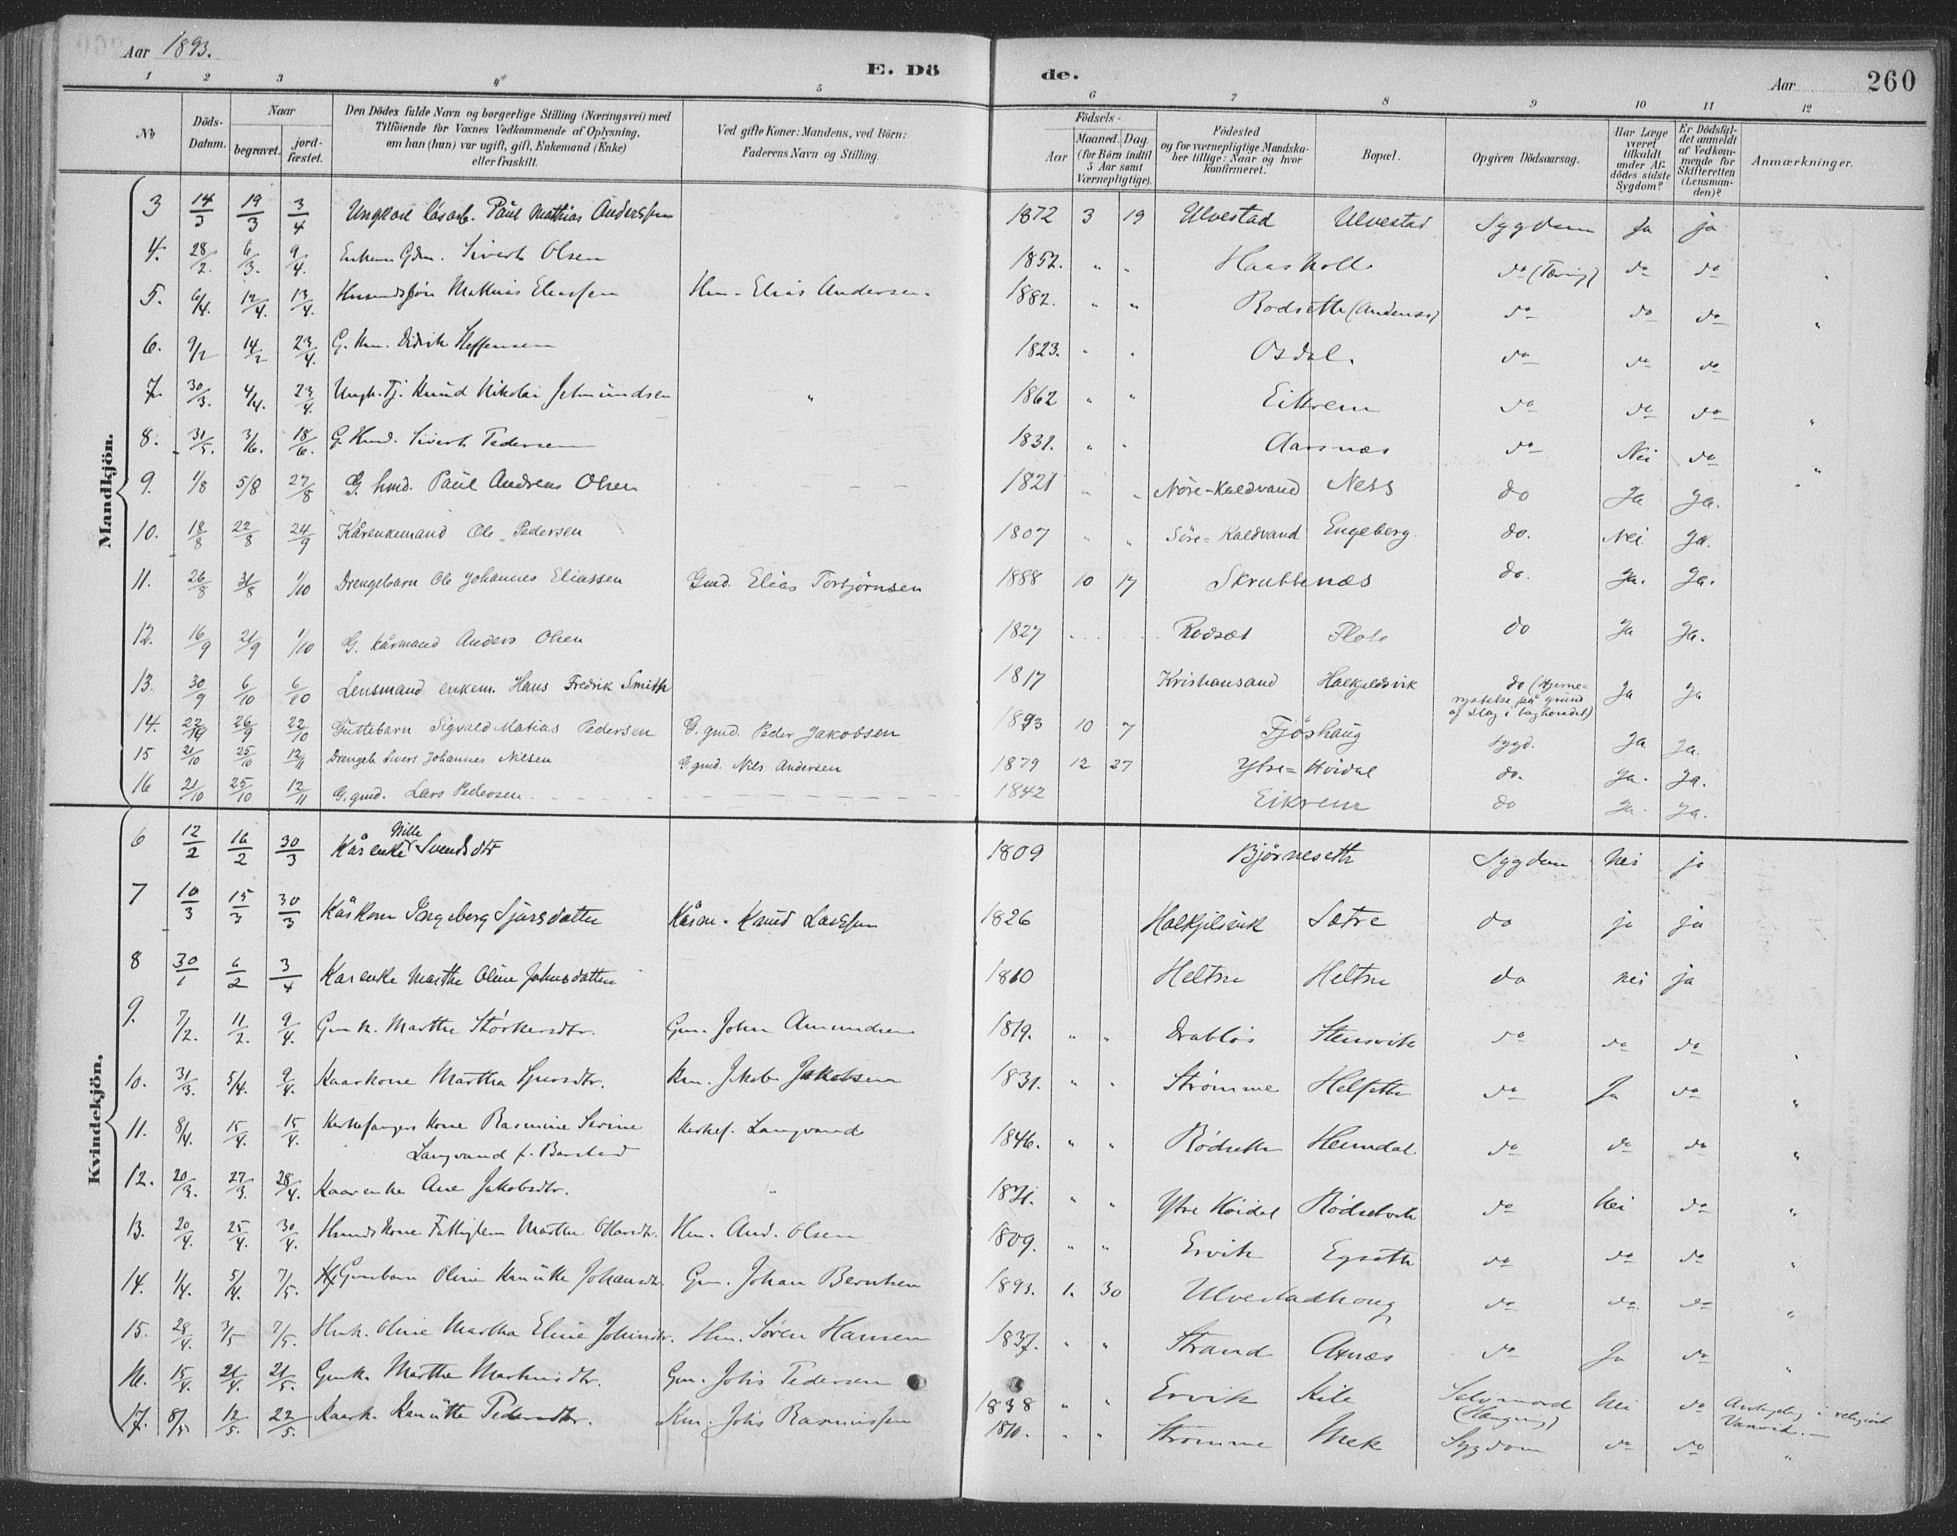 Aar 1893.
E. Dö
de.
Aar
260
1 2 3 4 5 6 7 8 9 10 11 12
No
Döds-Datum.
Naar
begravet.
jord-fæstet.
Den Dödes fulde Navn og borgerlige Stilling (Næringsvei) med
Tilföiende for Voxnes Vedkommende af Oplysning,
om han (hun) var ugift, gift, Enkemand (Enke)
eller fraskilt.
Ved gifte Koner: Mandens, ved Börn:
Faderens Navn og Stilling.
Födsels-
Aar
Maaned. Dag.
(for Börn indtil
5 Aar samt
Værnepligtige).
Födested
og for værnepligtige Mandska-
ber tillige: Naar og hvor
konfirmeret.
Bopæl.
Opgiven Dödsaarsag.
Har Læge
været
tilkaldt
under Af-
dödes sidste
Sygdom?
Er Dödsfal-
det anmeldt
af Vedkom-
mende for
Skifteretten
(Lensman-
den)?
Anmærkninger.
Mandkjön.
3 14/3 19/3 3/4 Ungkarl Paul Mathias Anderssen 1872 3 19 Ulvestad Ulvestad Sygdom Ja ja
4. 28/2. 6/3. 9/4. Sivert Olsen 1852. " " do do do "
5. 6/4. 12/4. 13/4. Mathias Eliassen Hm. Elias Andersen. 1882. " " Rodseth (Andenæs) do do do "
6. 9/2 14/2 23/4. G. Hm. Didrik Steffensen 1823. " " Osdal. do do do
7. 30/3. 4/4. 23/4. Ungk. Tj. Knud Nikolai " 1862 " " Eikrem do do do "
8. 31/5. 3/6. 18/6. G. Hmd. Sivert Pedersen 1831. " " Aarsnæs do Nei do "
9. 1/8 5/8 27/8 G. hmd. Paul Andreas Olsen 1821 " " Nöre-Kaldvand Ness do Ja Ja.
10. 18/8 22/8 24/9 Kårenkemand Ole Pedersen 1807 " " Söre-Kaldvand Engeberg. do. Nei Ja.
11. 26/8 31/8 1/10 Drengebarn Ole Johannes Eliassen Gmd. Elias Torbjörnsen 1888 10 17 Skrubbenæs do. Ja. Ja.
12. 16/9 21/9 1/10 G. kårmand Anders Olsen 1827 Rodsæt Flote do Ja Ja.
13. 30/9 6/10 6/10 Lensmand enkem. Hans Fredrik Smith 1817 Kristiansand Halkjeldsvik do (Hjerne-
rystelse på grund
af slag i baghovedet) Ja Ja
14. 26/9 22/10 Guttebarn Sigvald Matias Pedersen G. gmd. Peder Jakobsen 1893 10 7 Fjöshaug Sygd. Ja Ja.
15 21/10 25/10 12/11 Drengeb. Sivert Johannes Nilsen G. gmd. Nils Andersen 1879 12 27 Ytre-Hvidal do. Ja. Ja.
16 21/10 25/10 12/11 G. gmd. Lars Pedersen 1842 Eikrem do Ja. Ja.
Kvindekjön.
6 12/2 16/2 30/3 Kårenke Nille Svendsdtr 1809 Björneseth Sygdom Nei ja
7 10/3 15/3 30/3 Kårkone Ingeborg Sjursdatter Kårm. Knud Larssen 1826 Halkjelsvik Sætre do ja ja
8 30/1 6/2 3/4 Kårenke Marthe Oline Johnsdatter 1810 Heltne Heltne do nei ja
9. 7/2. 11/2. 9/4. Gmk. Marthe Störkersdtr. Gm. John Amundsen 1819. " " Drablös Stensvik do do do "
10. 31/3. 5/4. 9/4. Kaarkone Martha Sjursdtr. Km. Jakob Jakobsen 1831. " " Strømme Helseth do Ja do "
11. 8/4. 15/4. 15/4. Kirkesangers Kone Rasmine Serine
Langvand f. Barstad Kirkes. Langvand 1846. " " Rödseth Heimdal do do do "
12. 20/3. 27/3. 28/4. Kaarenke Ane Jakobsdtr. " " " Ytre Hoidal Rödsetvik do Nei do "
13. 20/4. 25/4. 30/4. Hmdskone Marthe Olsdtr. Hm. And. Olsen 1809. " " Ervik Egseth do do do "
14. 1/4. 5/4. 7/5. Gmbarn Oline Knutte Johansdtr. Gm. Johan Berntsen 1893. 1. 30 Ulvestadhoug do do do "
15. 28/4. 3/5 7/5. Hmk. Oline Martha Eline Johnsdtr. Hm. Søren Hansen 1837. " " Strand Aasnæs do Ja do "
16. 15/4. 21/4. 21/5. Gmk. Marthe Martinsdtr. Gm. Johs Pedersen 1838 " " Ervik Kile Selvmord
(Hængning) Nei do religiöst
Vanvid.
17. 8/5 12/5. 22/5. Kaark. Knutte Pedersdtr. Km. Johs Rasmussen 1810. " " Strømme Sygdom do do "